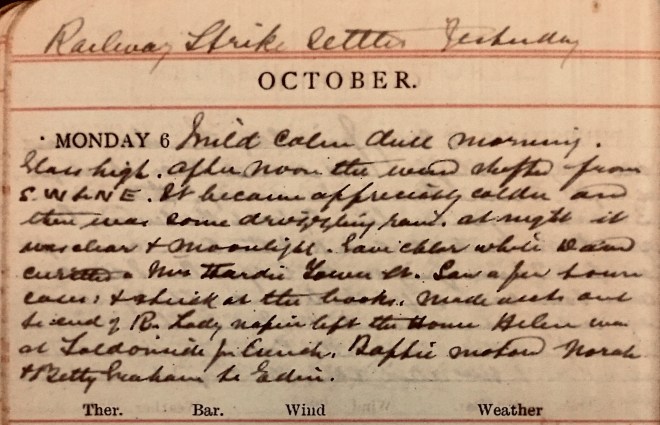 Railway Strike settled Yesterday
OCTOBER.
MONDAY 6 Mild calm dull morning.
Glass high. After noon the wind shifted from
S.W to NE. It became appreciably colder and
there was some drizzling rain. At night it
was clear & moonlight. Gave chlor while David
curetted a Mrs Hardie Tower St. Saw a few town
cases & stuck at the books. Made accts out
to end of R. Lady Napier left the Home Helen was
at Faldonside for lunch. Baptie motored Norah
& Betty Graham to Edin.
Ther. Bar. Wind Weather